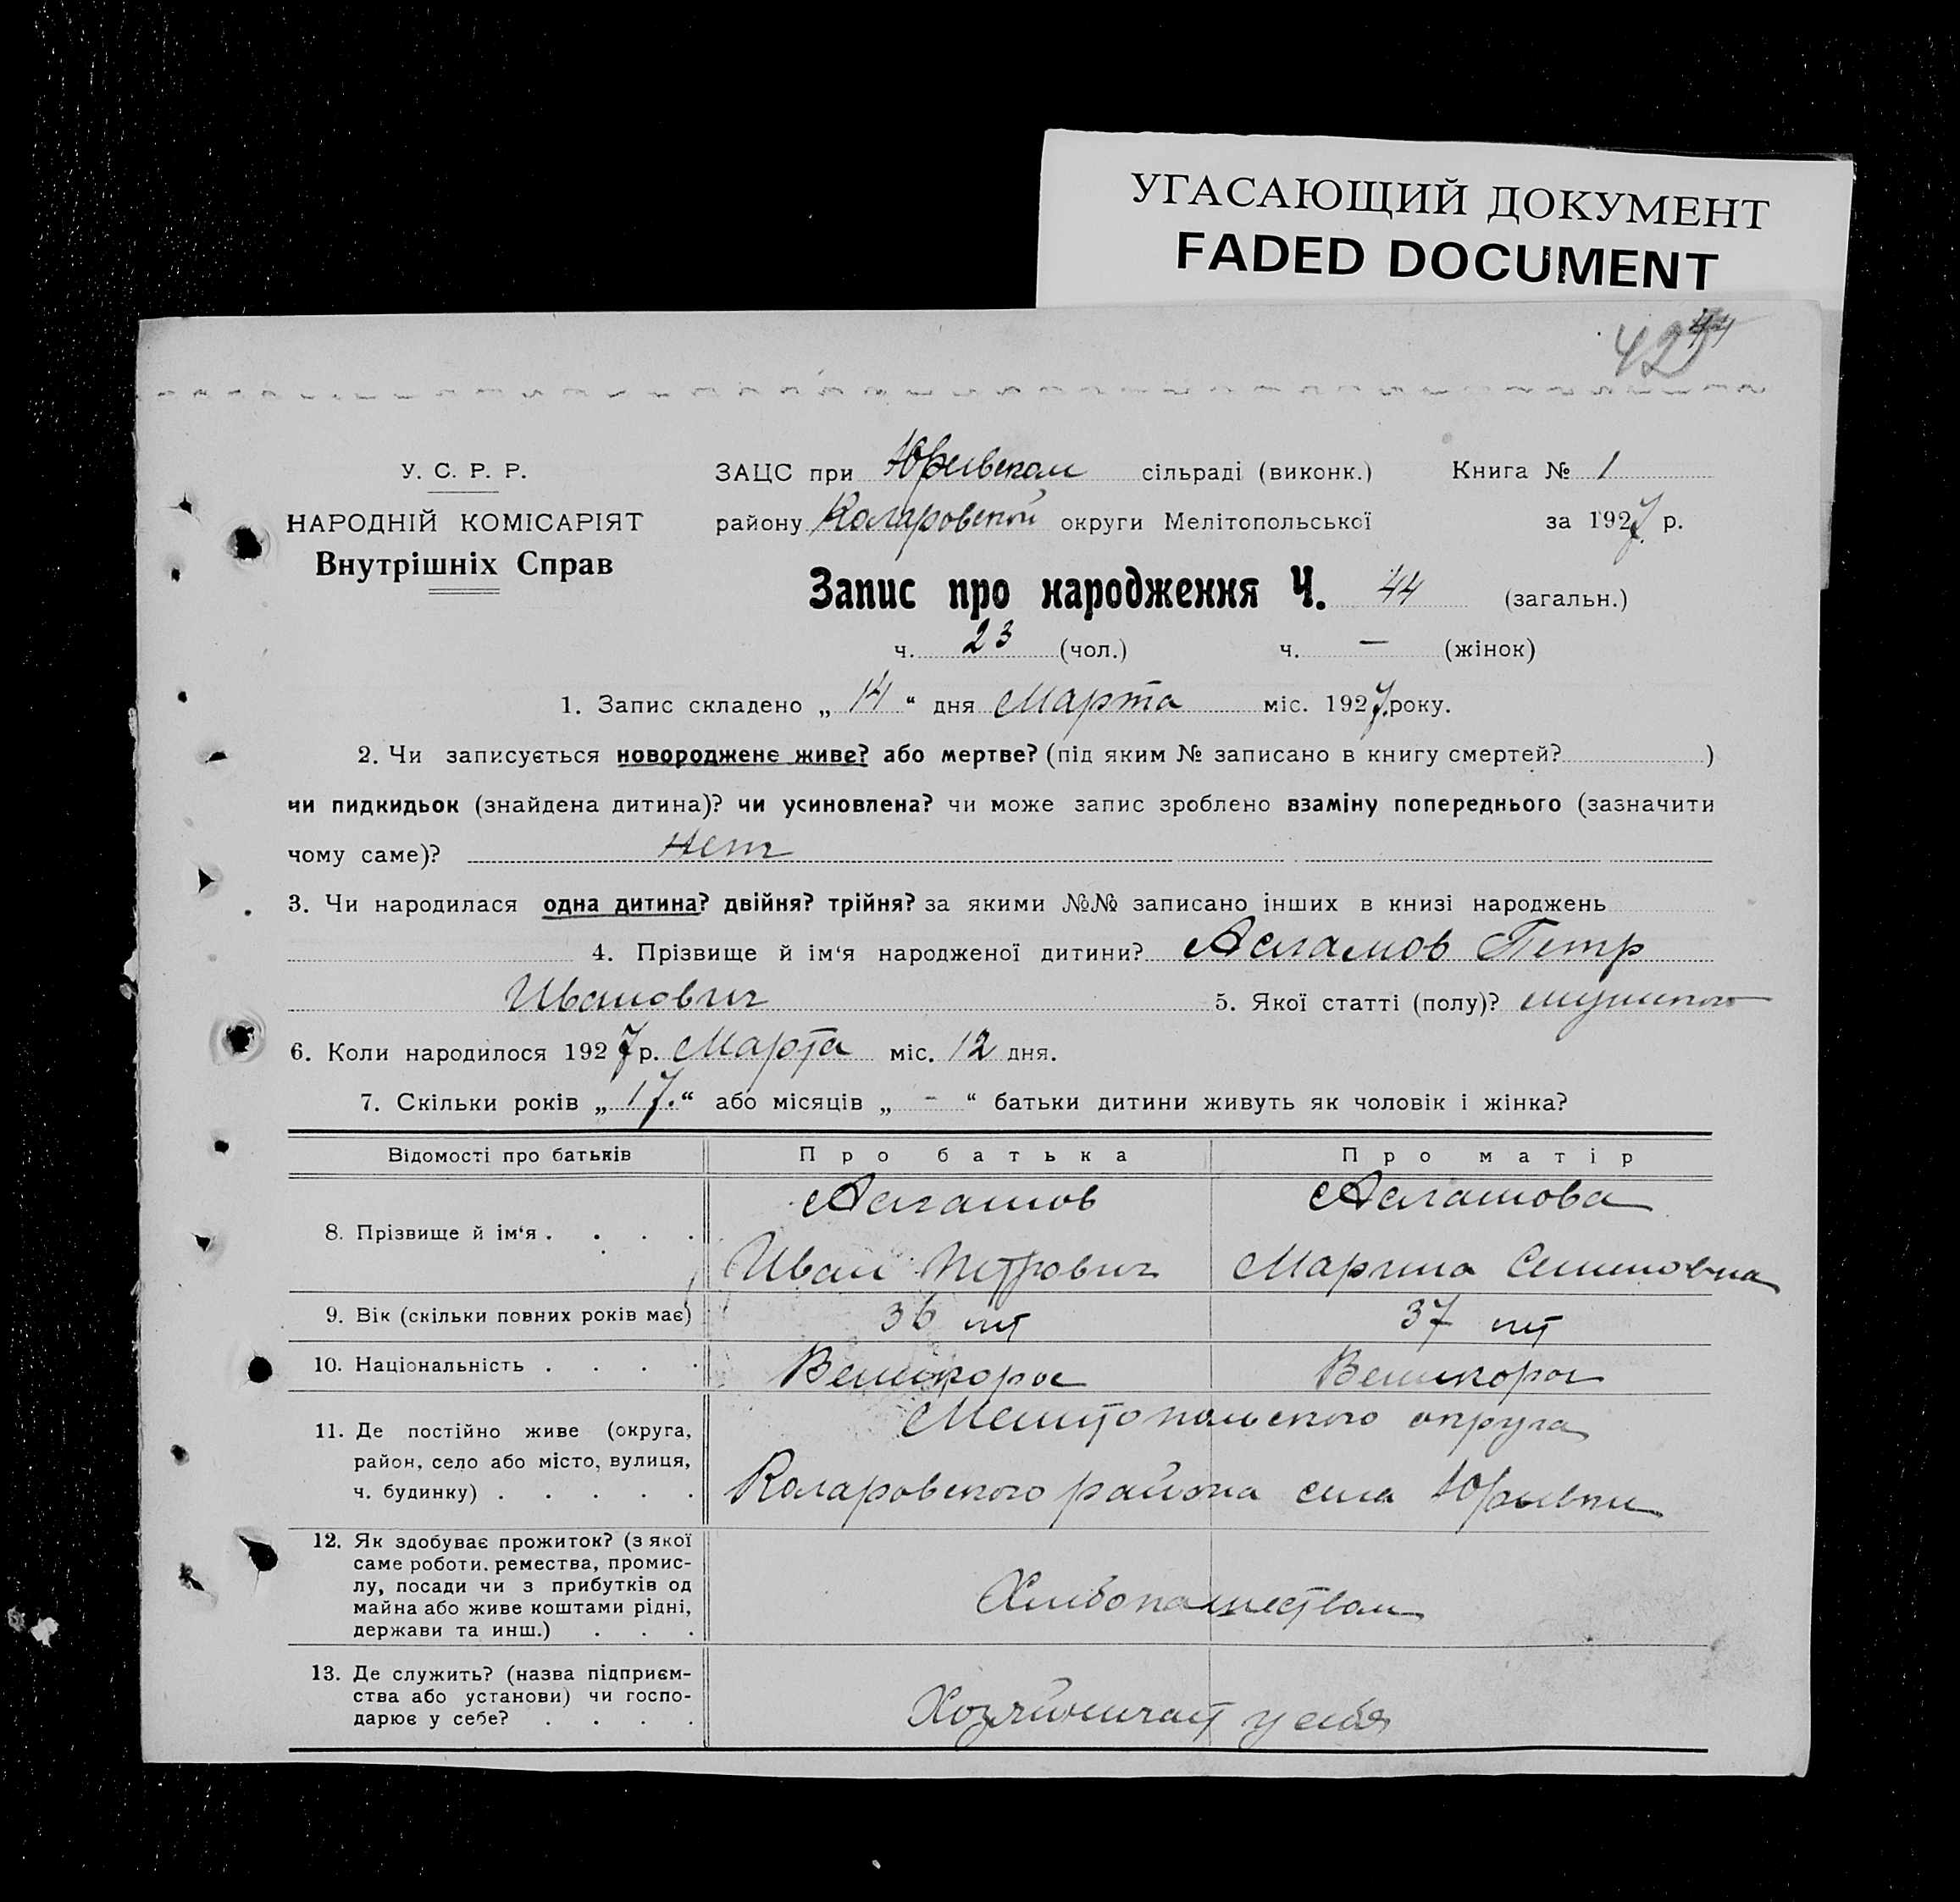 УГАСАЮЩИЙ ДОКУМЕНТ
FADED DOCUMENT
42 44
У. С. Р. Р.
НАРОДНІЙ КОМІСАРІЯТ
Внутрішніх Справ
ЗАЦС при Юрьевском сільраді (виконк.) Книга № 1
району Коларовской округи Мелітопольської за 1927 р.
Запис про народження Ч. 44 (загальн.)
ч. 23 (чол.) ч. — (жінок)
1. Запис складено „ 14 “ дня Марта міс. 1927 року.
2. Чи записується новороджене живе? або мертве? (під яким № записано в книгу смертей? )
чи пидкидьок (знайдена дитина)? чи усиновлена? чи може запис зроблено взаміну попереднього (зазначити
чому саме)? Нет
3. Чи народилася одна дитина? двійня? трійня? за якими №№ записано інших в книзі народжень
4. Прізвище й ім‘я народженої дитини? Асламов Петр
Иванович 5. Якої статті (полу)?
6. Коли народилося 1927 р. Марта міс. 12 дня.
7. Скільки років „ 17. “ або місяців „ - “ батьки дитини живуть як чоловік і жінка?
Відомості про батьків Про батька Про матір
8. Прізвище й ім‘я . . . . Асламов Асламова
Иван Петрович Марина Семеновна
9. Вік (скільки повних років має) 36 лет 37 лет
10. Національність . . . . Великорос Великорос
11. Де постійно живе (округа,
район, село або місто, вулиця,
ч. будинку) . . . . .
Мелитопольского округа
Коларовского района села Юрьевки
12. Як здобуває прожиток? (з якої
саме роботи. ремества, промис-
лу, посади чи з прибутків од
майна або живе коштами рідні,
держави та инш.) . . .
Хлебопашеством
13. Де служить? (назва підприєм-
ства або установи) чи госпо-
дарює у себе? . . . .
Хозяйничает у себя